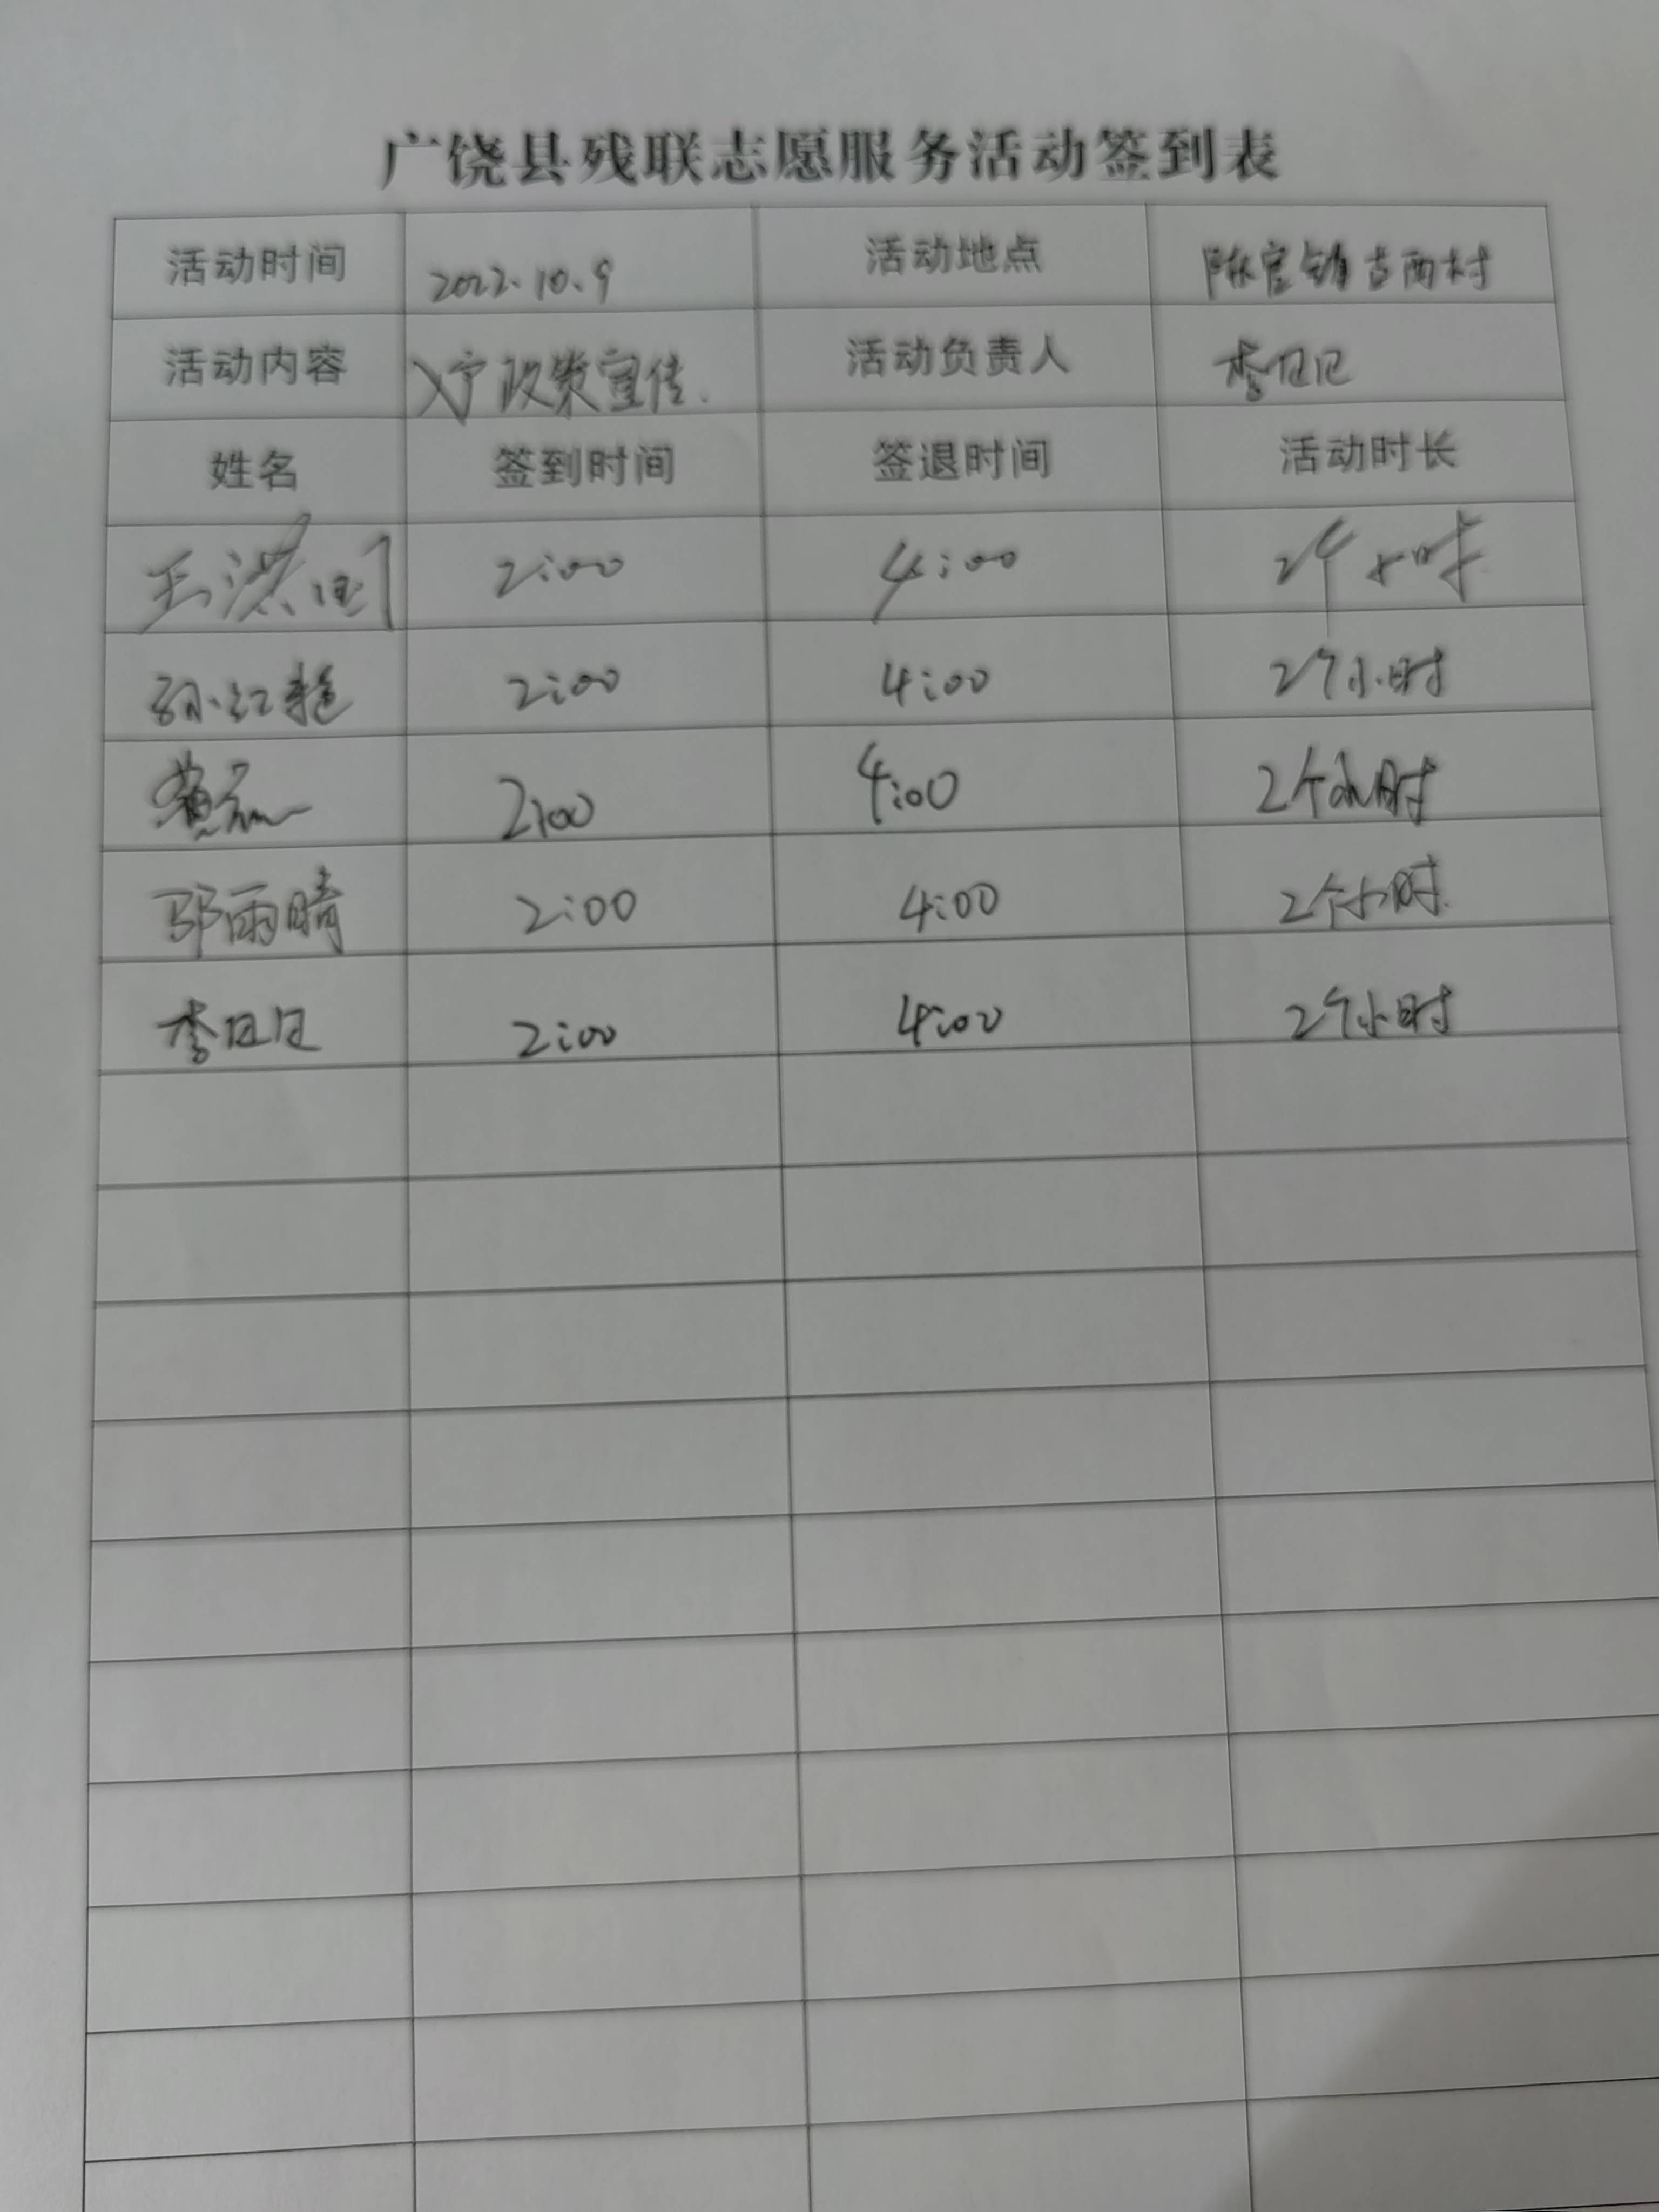 广饶县残联志愿服务活动签到表
活动时间 2022.10.9 活动地点 陈官镇古西村
活动内容 入户政策宣传. 活动负责人 李
姓名 签到时间 签退时间 活动时长
王洪 2:00 4:00 2个小时
孙红艳 2:00 4:00 2个小时
2:00 4:00 2个小时
邬雨晴 2:00 4:00 2个小时.
李 2:00 4:00 2个小时